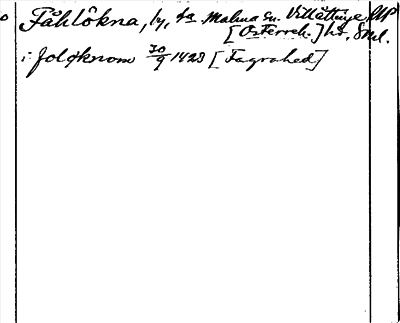 Fåhlökna, by, ta Malma sn. Villåttinge UP
[Österreh.] hd. Sml.
i foløknom 30/9 1423 [Fagrahed]